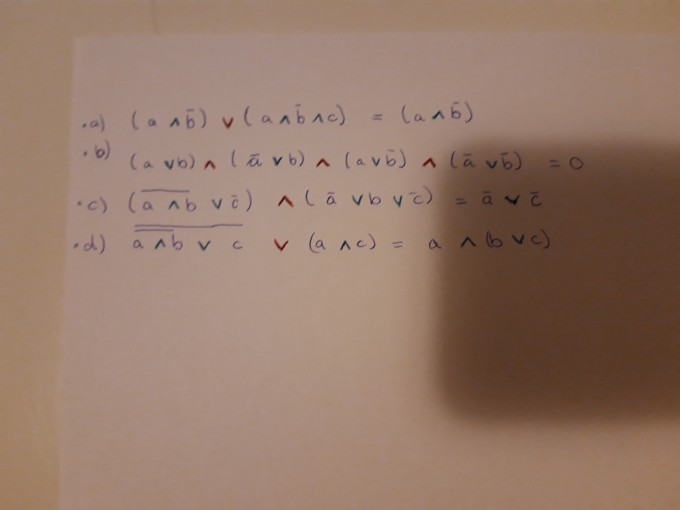 ·a) (a ∧ b̄) ∨ (a ∧ b̄ ∧ c) = (a ∧ b̄)
·b) (a ∨ b) ∧ (ā ∨ b) ∧ (a ∨ b̄) ∧ (ā ∨ b̄) = 0
·c) (a̅ ̅∧̅ ̅b̅ ∨ c̄) ∧ (ā ∨ b ∨ c̄) = ā ∨ c̄
·d) \overline{\overline{a ∧ b} ∨ c} ∨ (a ∧ c) = a ∧ (b ∨ c)